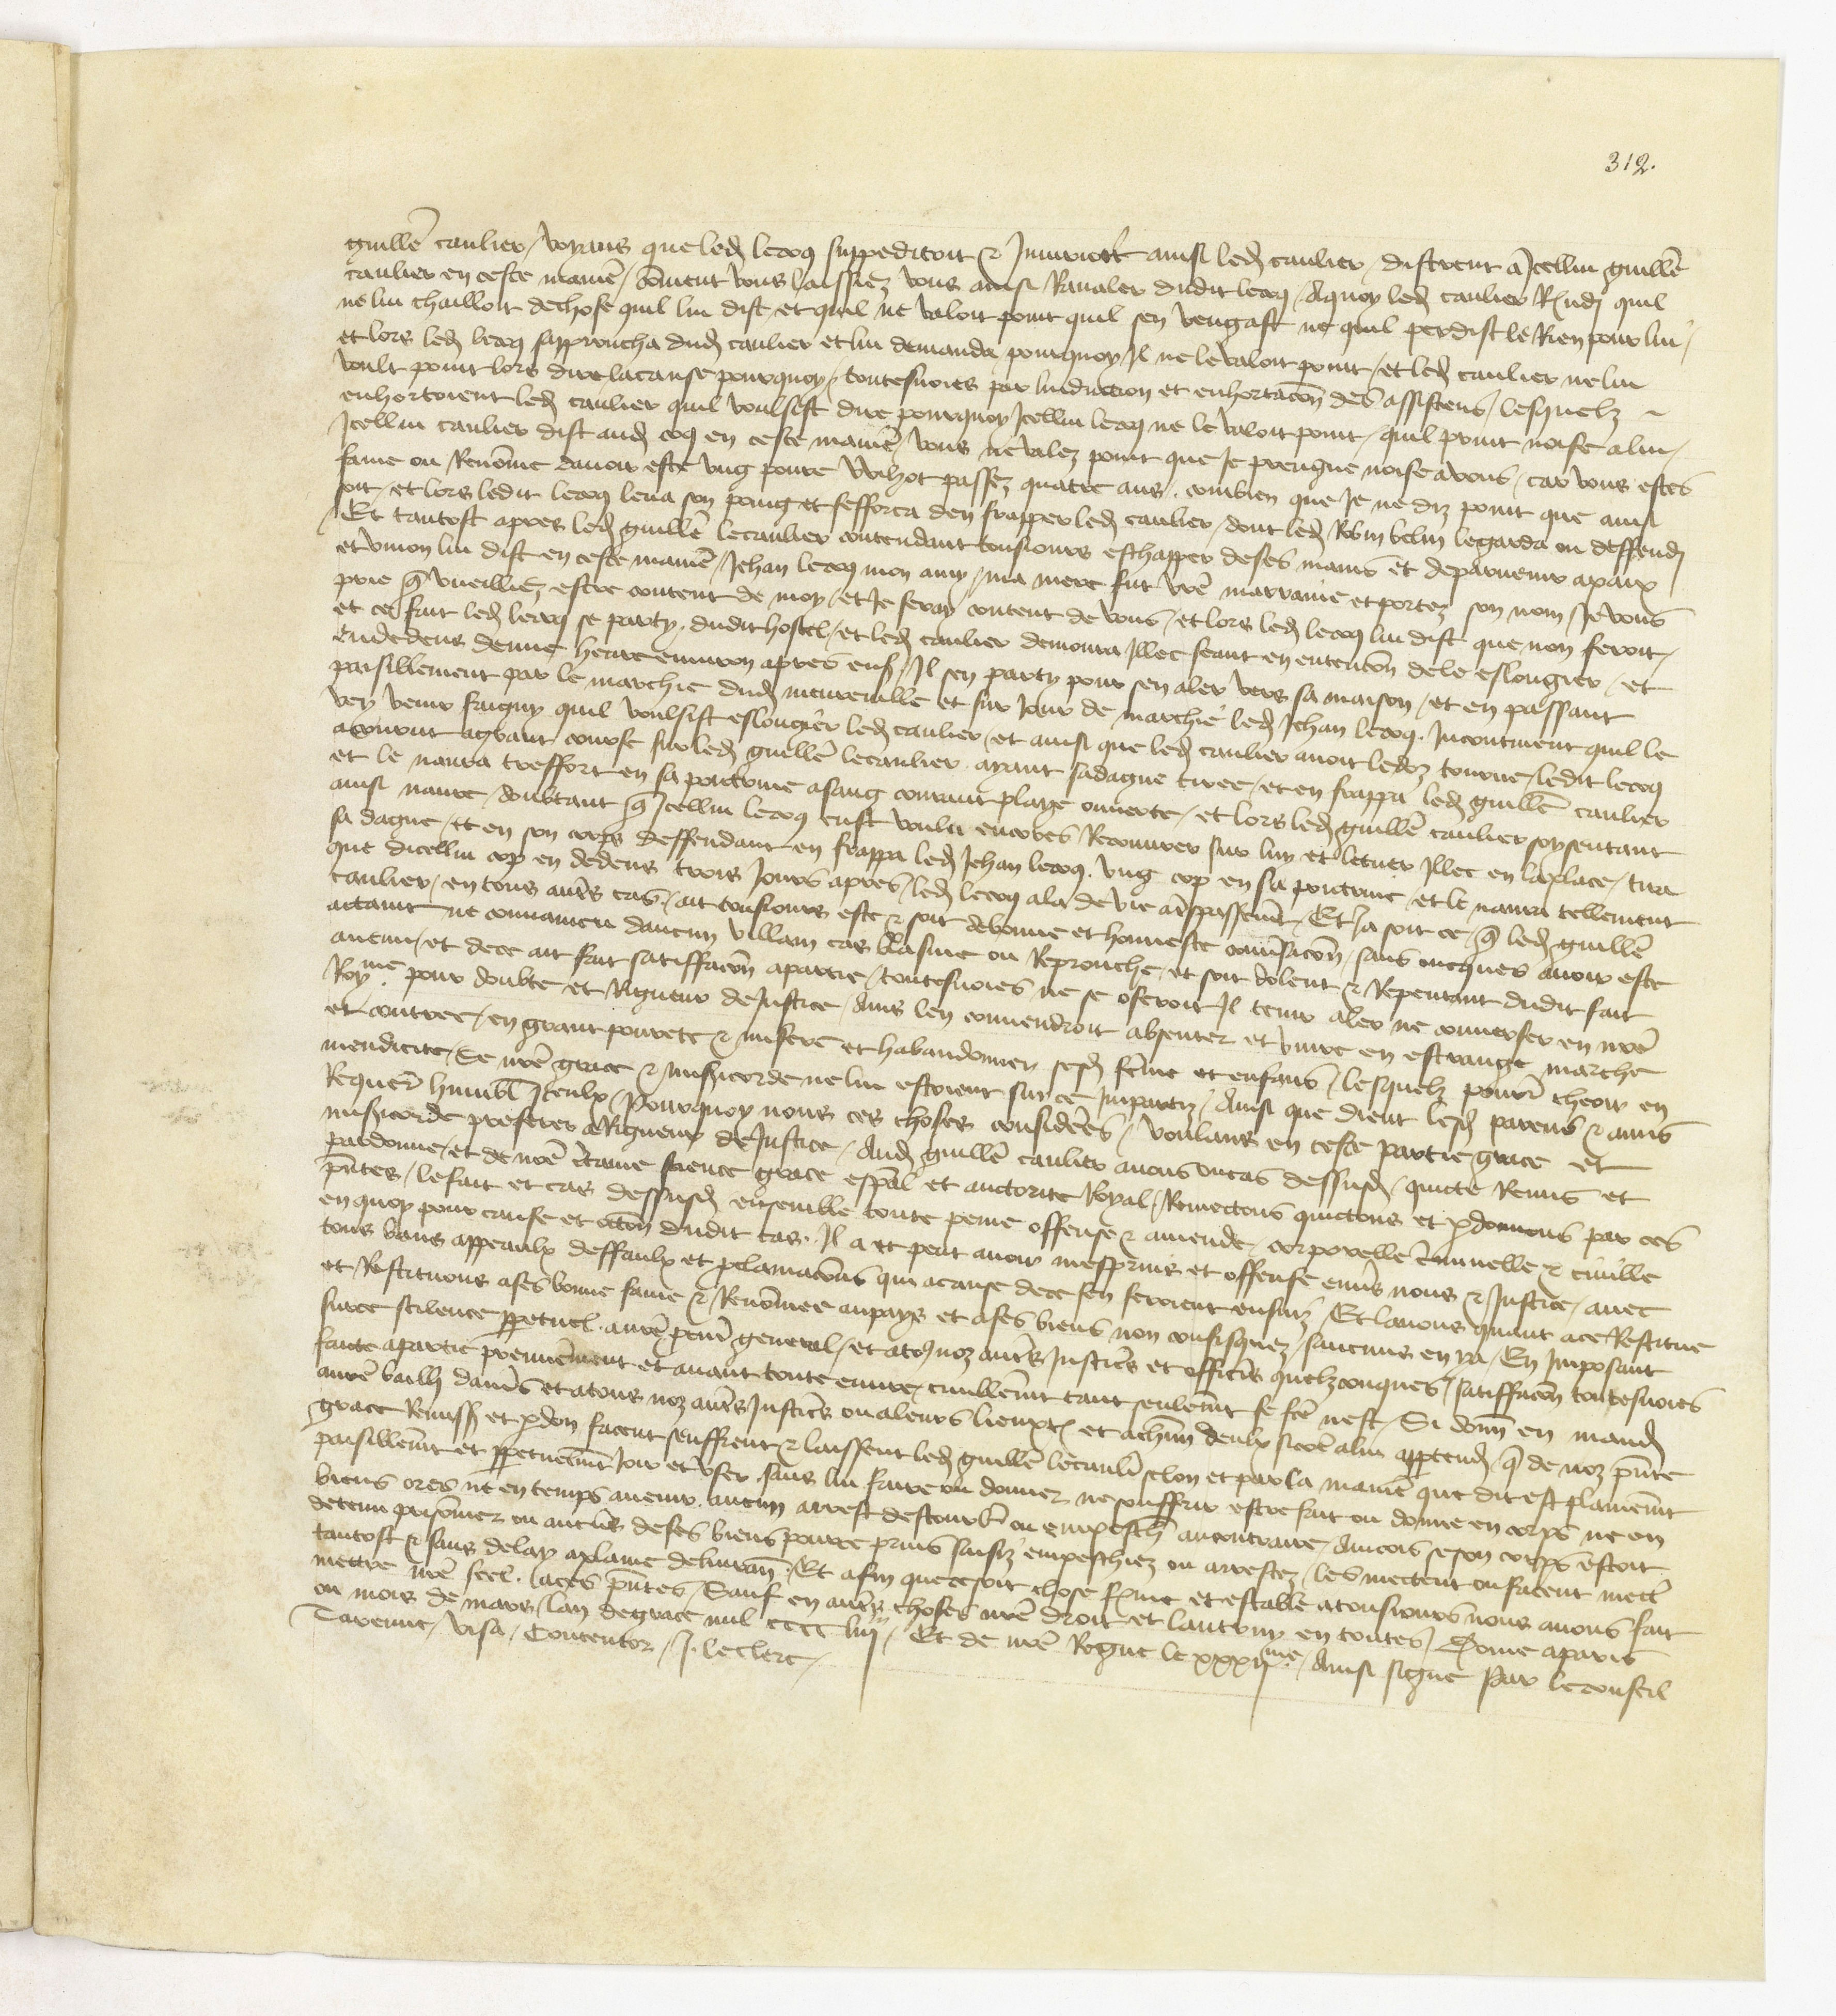 312.
guille͞ caulier / voyans que led̶ lecoq suppeditoit ⁊ Iniurioit ainsi led̶ caulier / distrent a Icellui guille͞
caulier en ceste manie͞ / Co͞ment vous laissiez vous ainsi Raualer dudit lecoq / Aquoy led̶ caulier Rn̄di quil
ne lui chailloit de chose quil lui dist / et quil ne valoit point quil sen vengast ne quil perdist le Rien pour lui /
et lors led̶ lecoq sapproucha dud̶ caulier et lui demanda pourquoy / Il ne le valoit point / et led̶ caulier ne lui
voult point lors dire la cause pourquoy / toutesuoies par linduction et enhortac͞on des assistens / lesquelz
enhortoient led̶ caulier quil voulsist dire pourquoy Icellui lecoq ne le valoit point / quil prinst noise a lui /
Icellui caulier dist aud̶ coq en ceste manie͞ / vous ne valez point que Ie prengne noise a vous / car vous estes
fame ou Reno͞me dauoir este vng poure wihot passez quatre ans / combien que Ie ne diz point que ainsi
soit / et lors ledit lecoq leua son poing et sefforca den frapper led̶ caulier / dont led̶ Robin belin le garda ou deffendi
Et tantost apres led̶ guille͞ lecaulier contendant tousiours eschapper de ses mains et de paruenir a paix
et vnion lui dist en ceste manie͞ / Iehan lecoq mon amy / ma mere fut vr͞e marraine et portez son nom / Ie vous
prie q͞ vueilliez estre content de moy / et Ie seray content de vous / et lors led̶ lecoq lui dist que non feroit /
et ce fait led̶ lecoq se party dudit hostel / et led̶ caulier demoura Illec seant en entenc͞on de le eslongier / et
endedens demie heure enuiron apres ens̄ / Il sen party pour sen aler vers sa maison / et en passant
paisiblement par le marchie dud̶ meureville et sur Iour de marchie led̶ Iehan lecoq / Incontinent quil le
vey venir faigny quil voulsist eslongier led̶ caulier / et ainsi que led̶ caulier auoit le doz tourne / ledit lecoq
acourut a grant course sur led̶ guille͞ lecaulier / ayant sa dague tiree / et en frappa led̶ guille͞ caulier
et le naura tresfort en sa poictrine a sang courant playe ouuerte / et lors led̶ guille͞ caulier soy sentant
ainsi naure / doubtant q͞ Icellui lecoq eust voulu encores Recouurer sur luy et le tuer Illec en la place / tira
sa dague / et en son corps deffendant en frappa led̶ Iehan lecoq vng cop en sa poictrine / et le naura tellement
que dicellui cop en dedens trois Iours apres / led̶ lecoq ala de vie a tr͞spassem͞t / Et Ia soit ce / q͞ led̶ guille͞
caulier / en tous aut͞s cas / ait tousiours este ⁊ soit de bonne et honneste conu͞sac͞on / sans oncques auoir este
actaint ne conuaincu daucun villain cas blasme ou Reprouche / et soit dolent ⁊ Repentant dudit fait
aucun / et de ce ait fait satiffac͞on a partie / toutesuoies ne se oseroit Il tenir aler ne conuerser en nr͞e
Roy͞me pour doubte et Rigueur de Iustice / Ains len conuendroit absenter et viure en estrange marche
et contree / en grant pourete ⁊ misere et habandonner sesd̶ fe͞me et enfans / lesquelz pourr͞ cheoir en
mendicite / Se nr͞e grace ⁊ misericorde ne lui estoient sur ce Impartiz / Ainsi que dient lesd̶ parens ⁊ amis
Requer͞ humbl͞ Iceulx / Pourquoy nous ces choses consider͞es / voulans en ceste partie grace et
mis̄icorde preferer a Rigueur de Iustice / Aud̶ guille͞ caulier auons ou cas dessusd̶ / quicte Remis et
pardonne / et de nr͞e c͞taine science grace esp͞al et auctorite Royal / Remectons quictons et p̱donnons par ces
p͞ntes / le fait et cas dessusd̶ ensemble toute peine offense ⁊ amende / corporelle c͞minelle ⁊ ciuille
en quoy pour cause et occ͞on dudit cas / Il a et peut auoir mesprins et offense enu͞s nous ⁊ Iustice / auec
tous bans appeaulx deffaulx et p̱clamac͞ons qui a cause de ce sen seroient ensuiz / Et lauons quant a ce Restitue
et Restituons a ses bonne fame ⁊ Reno͞mee au pays et a ses biens non confisquez / saucuns en ya / En Imposant
sur ce scilence p̱petuel / a nr͞e p̱cur͞ general / et a to9 noz aut͞s Iustic͞s et offic͞s quelzconques / satiffac͞on toutesuoies
faicte a partie premiereme͞nt et auant toute euure / ciuillem͞t tant seulem͞t se fc͞e nest / Si donn͞ en mand̶
a nr͞e bailli damie͞s et a tous noz aut͞s Iustic͞s ou a leurs lieux⁊ et a chun͞ deulx sicom͞ a lui app̱tend̶ / q͞ de noz p͞nte
grace Remiss̄ et p̱don facent seuffrent ⁊ laissent led̶ guille͞ lecauli͞ selon et par la manie͞ que dit est plainem͞t
paisiblem͞t et p̱petuelm͞t Ioir et vser / sans lui faire ou donner ne souffrir estre fait ou donne en corps ne en
biens ores ne en temps auenir / aucun arrest destourb͞r ou empesch͞ au contraire / Aincois se son corps estoit
detenu priso͞nier ou aucu͞s de ses biens pour ce prins saisiz empeschiez ou arrestez / les mectent ou facent mect͞
tantost ⁊ sans delay a plaine deliuran͞ / Et afin que ce soit chose f̱me et estable a tousiours nous auons fait
mettre nr͞e seel a ces p͞ntes / Sauf en aut͞s choses nr͞e droit et lautruy en toutes / Donne a paris
ou mois de mars / lan de grace mil cccc liij / Et de nr͞e Regne le xxxij͞me / Ainsi signe Par le conseil
Tareune / Visa / Contentor / J. le clerc /